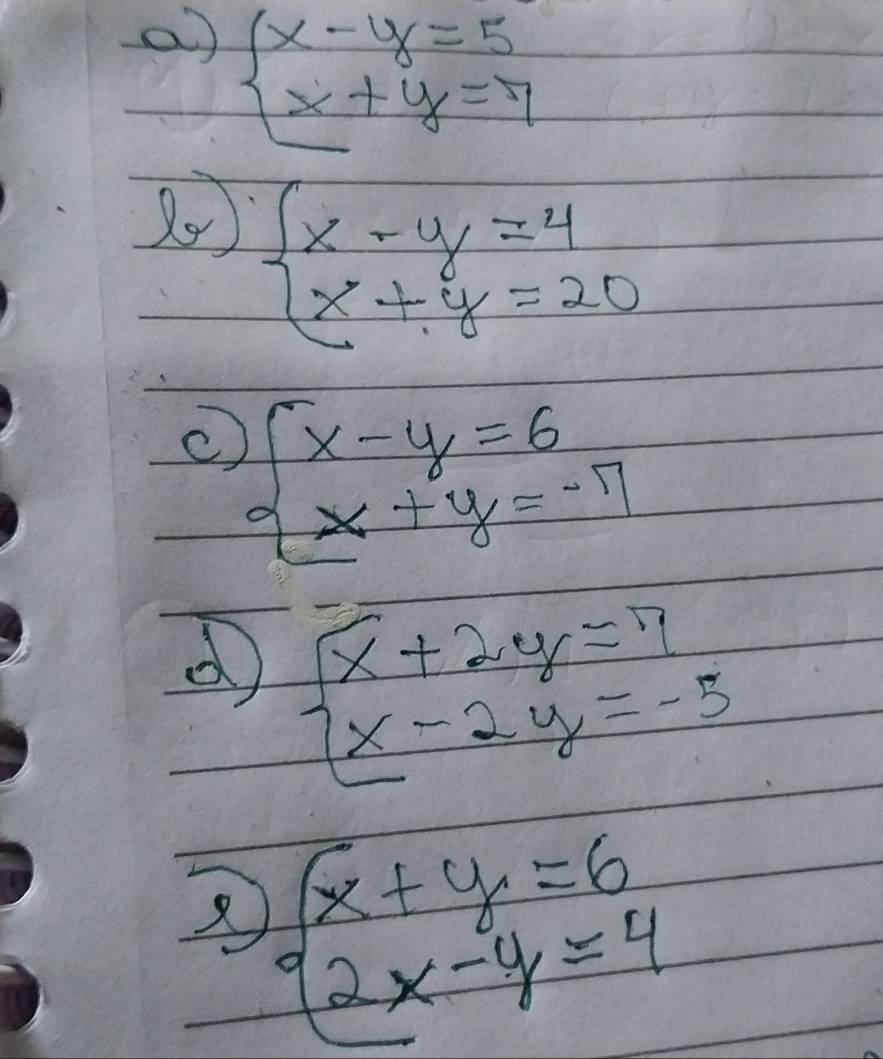 a) { x - y = 5
x + y = 7
b) { x - y = 4
x + y = 20
c) { x - y = 6
x + y = -7
d) { x + 2y = 7
x - 2y = -5
e) { x + y = 6
2x - y = 4